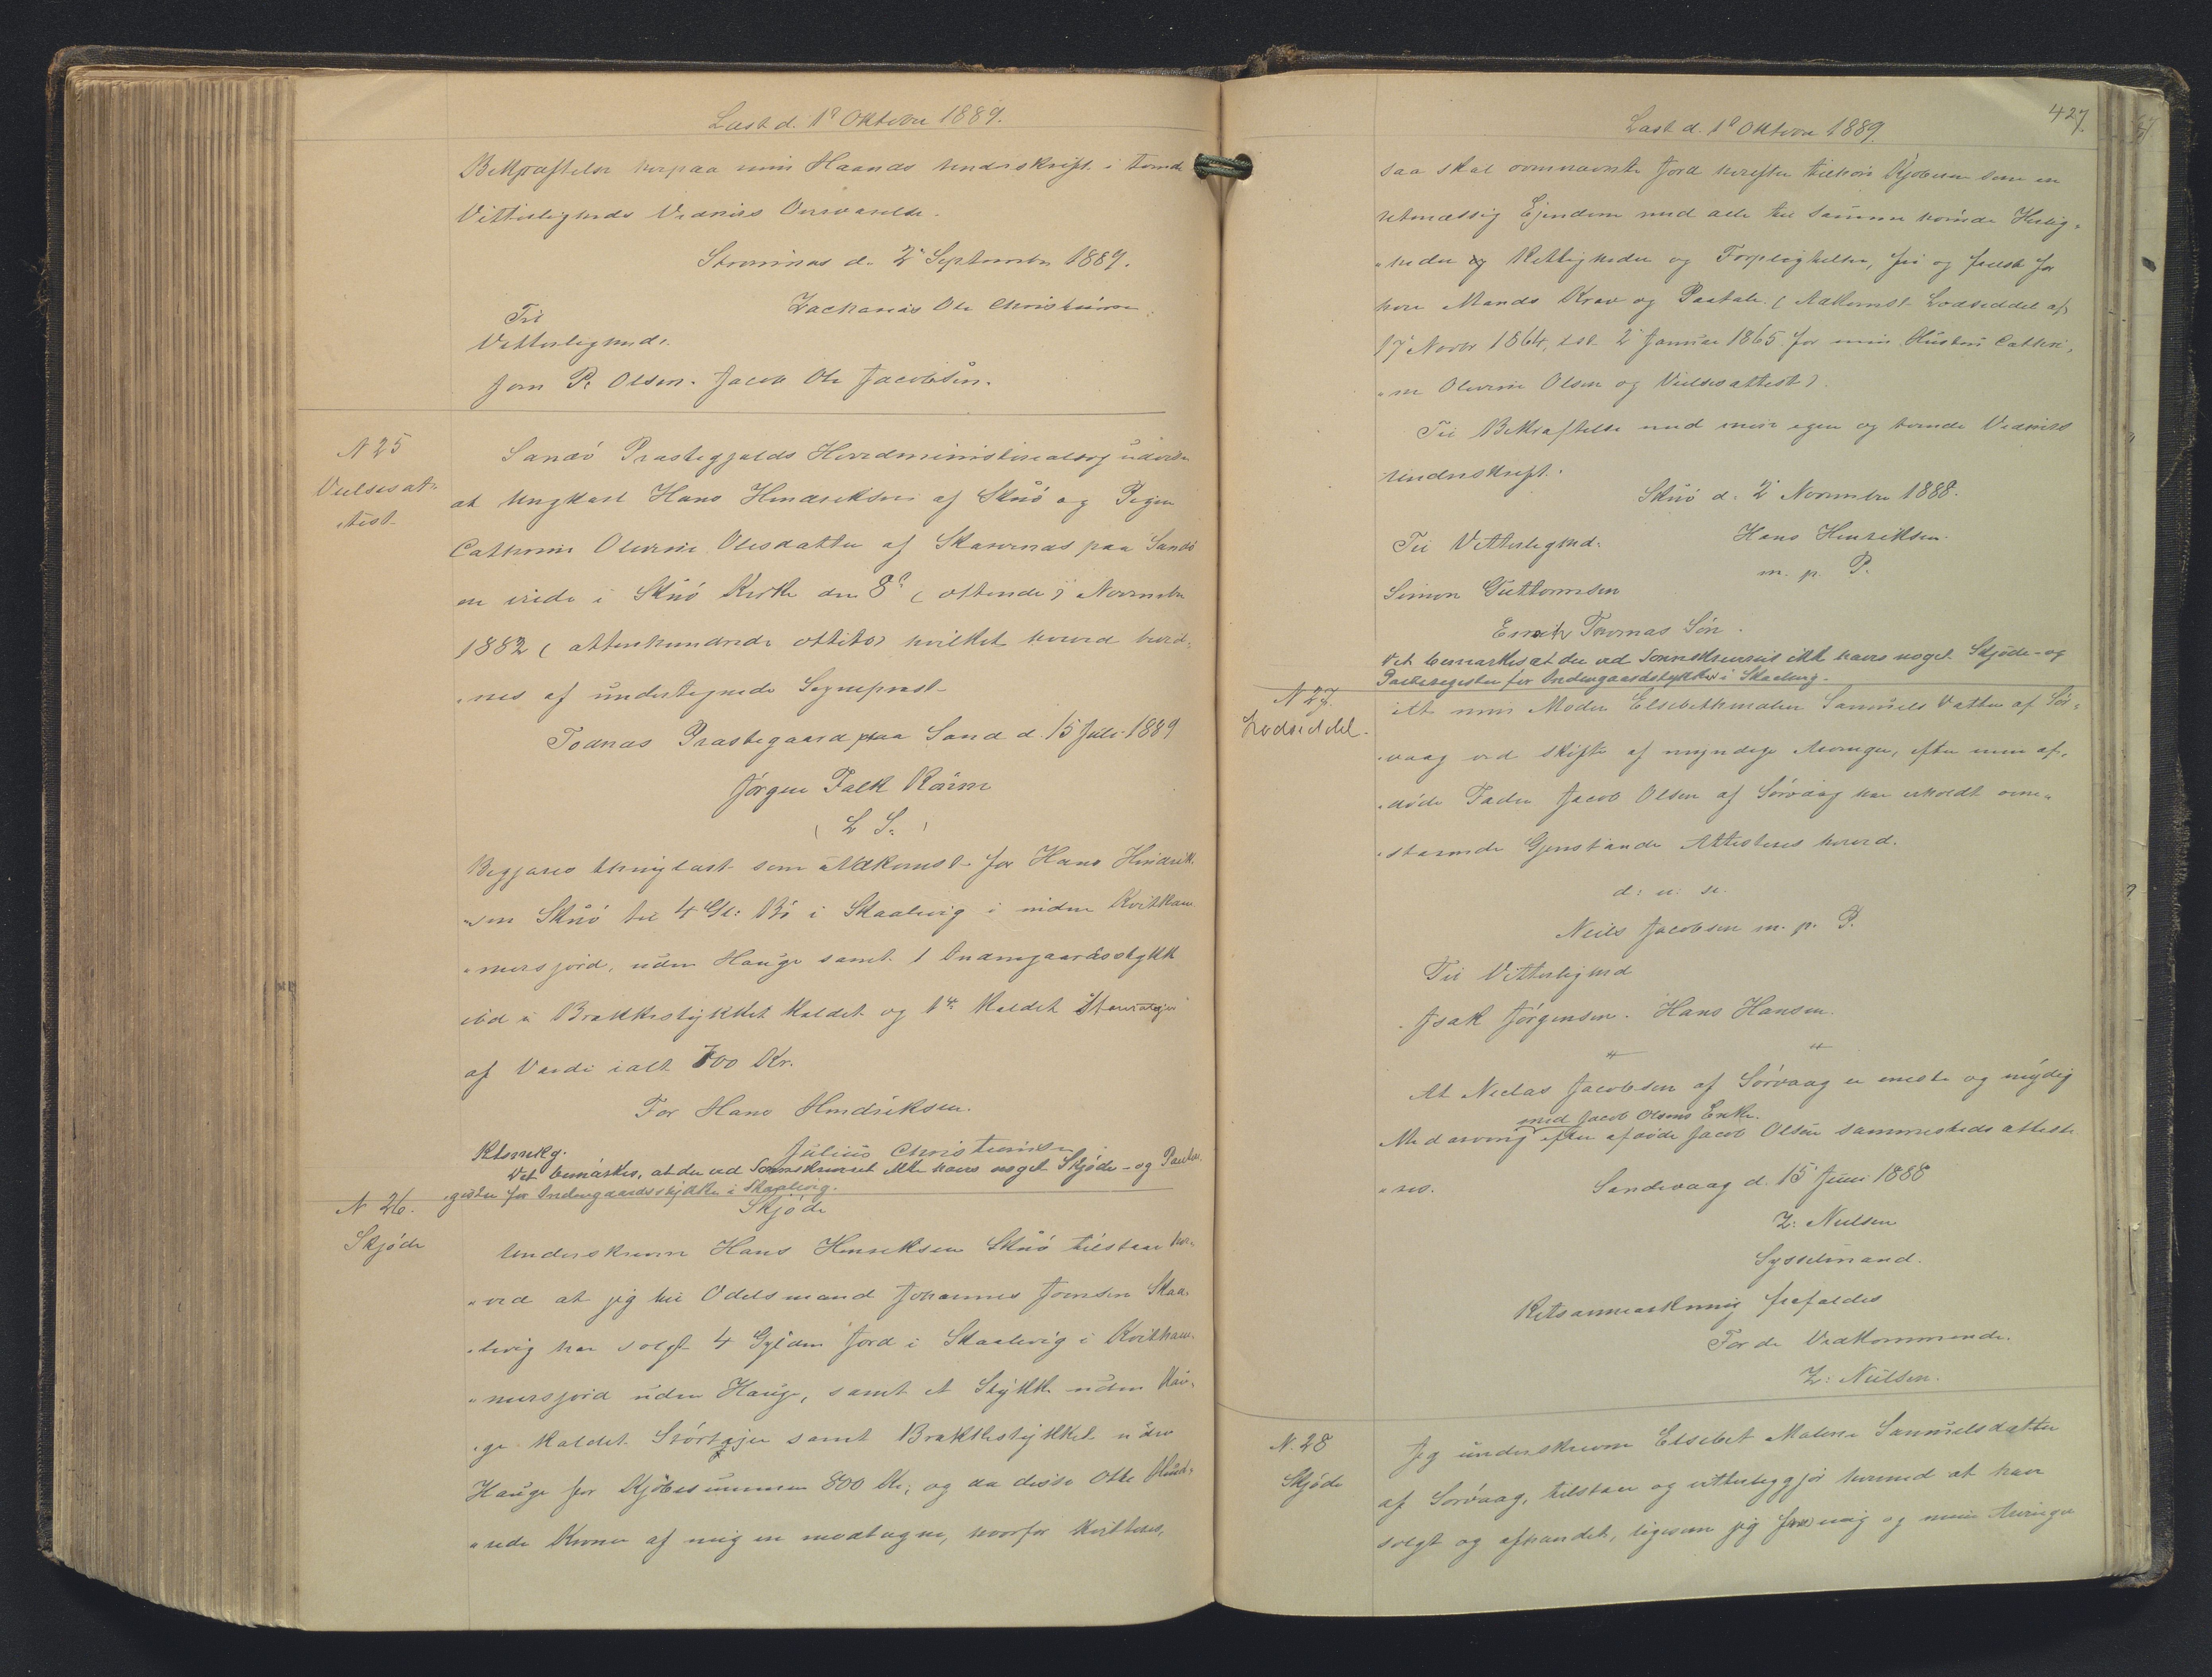 Læst d. 1ᵉ Oktober 1889.
Bekræftelse herpaa min Haands Underskrift i tvende
Vitterligheds Vidners Overværelse.
Strømnæs d. 2 September 1889.
Zacharias Ole Christiansen
Til
Vitterlighed:
Joen P. Olsen. Jacob Ole Jacobsen.
N 25
Vielsesat-
test
Sandø Præstegjælds Hovedministerialbog udviser
at Ungkarl Hans Hendriksen af Skuø og Pigen
Cathrine Oluvine Olesdatter af Skarvenæs paa Sandø
ere viede i Skuø Kirke den 8ᵉ (ottende) November
1882 (attenhundrede ottito) hvilket herved bevid-
nes af undertegnede Sognepræst
Todnæs Præstegaard paa Sand d. 15 Juli 1889
Jørgen Falk Rønne
(L S.)
Begjæres thinglæst som Adkomst for Hans Hindrik-
sen Skuø til 4 Gl: Bø i Skaalevig i niden Kvitham-
mersjord, uden Hauge samt 1 Indengaardsstykke
ibd: Brekkestykket kaldet og 1 kaldet
af Værdi ialt 700 Kr.
For Hans Hendriksen.
Julius Christiansen
Rtsmkg.
Det bemærkes, at der ved Sorenskriveriet ikke haves noget Skjøde- og Pantere-
gister for Indengaardsstykker i Skaalevig.
N 26.
Skjøde
Skjøde
Underskrevne Hans Henriksen Skuø tilstaar her-
ved at jeg til Odelsmand Johannes Joensen Skaa-
levig har solgt 4 Gylden Jord i Skaalevig i Kvitham-
mersjord uden Hauge, samt et Stykke uden Hau-
ge kaldet Stórtejer samt Brekkestykket uden
Hauge for Kjøbesummen 800 Kr; og da disse Otte Hund-
rede Kroner af mig ere modtagne, hvorfor kvitteres,
Læst d. 1ᵉ Oktober 1889.
427.
saa skal ovennævnte Jord herefter tilhøre Kjøberen som en
retmæssig Ejendom med alle til samme hørende Herlig-
heder og Rettigheder og Forpligtelser, fri og frelst for
hver Mands Krav og Paatale. (Adkomst Lodseddel af
17 Novbr 1864, lst 2 Januar 1865 for min Hustru Cathri-
ne Oluvine Olsen og Vielsesattest).
Til Bekræftelse med min egen og tvende Vidners
Underskrift.
Skuø d. 2 November 1888.
Til Vitterlighed:
Hans Henriksen
m. p. P.
Simon Guttormsen
Thomas Søn.
Det bemærkes at der ved Sorenskriveriet ikke haves noget Skjøde- og
Panteregister for Indengaardsstykker i Skaalevig.
N 27.
Lodseddel.
At min Moder Elsebethmalene Samuels Datter af Sør-
vaag ved Skifte af myndige Arvinger, efter min af-
døde Fader Jacob Olsen af Sørvaag har erholdt oven-
staaende Gjenstande Attesteres herved.
d: u: s.
Neils Jacobsen m. p. P.
Til Vitterlighed
Isak Jørgensen. Hans Hansen.
At Niclas Jacobsen af Sørvaag er eneste og mydig
med Jacob Olsens Enke.
Medarving efter afdøde Jacob Olsen sammesteds atteste-
res.
Sandevaag d. 15 Juni 1888
Z: Nielsen
Sysselmand.
Retsanmærkning frafaldes
For de Vedkommende.
Z: Nielsen.
N. 28
Skjøde
Jeg underskrevne Elsebet Malene Samuelsdatter
af Sørvaag, tilstaar og vitterliggjør hermed at have
solgt og afhændet, ligesom jeg fra mig og mine Arvinger